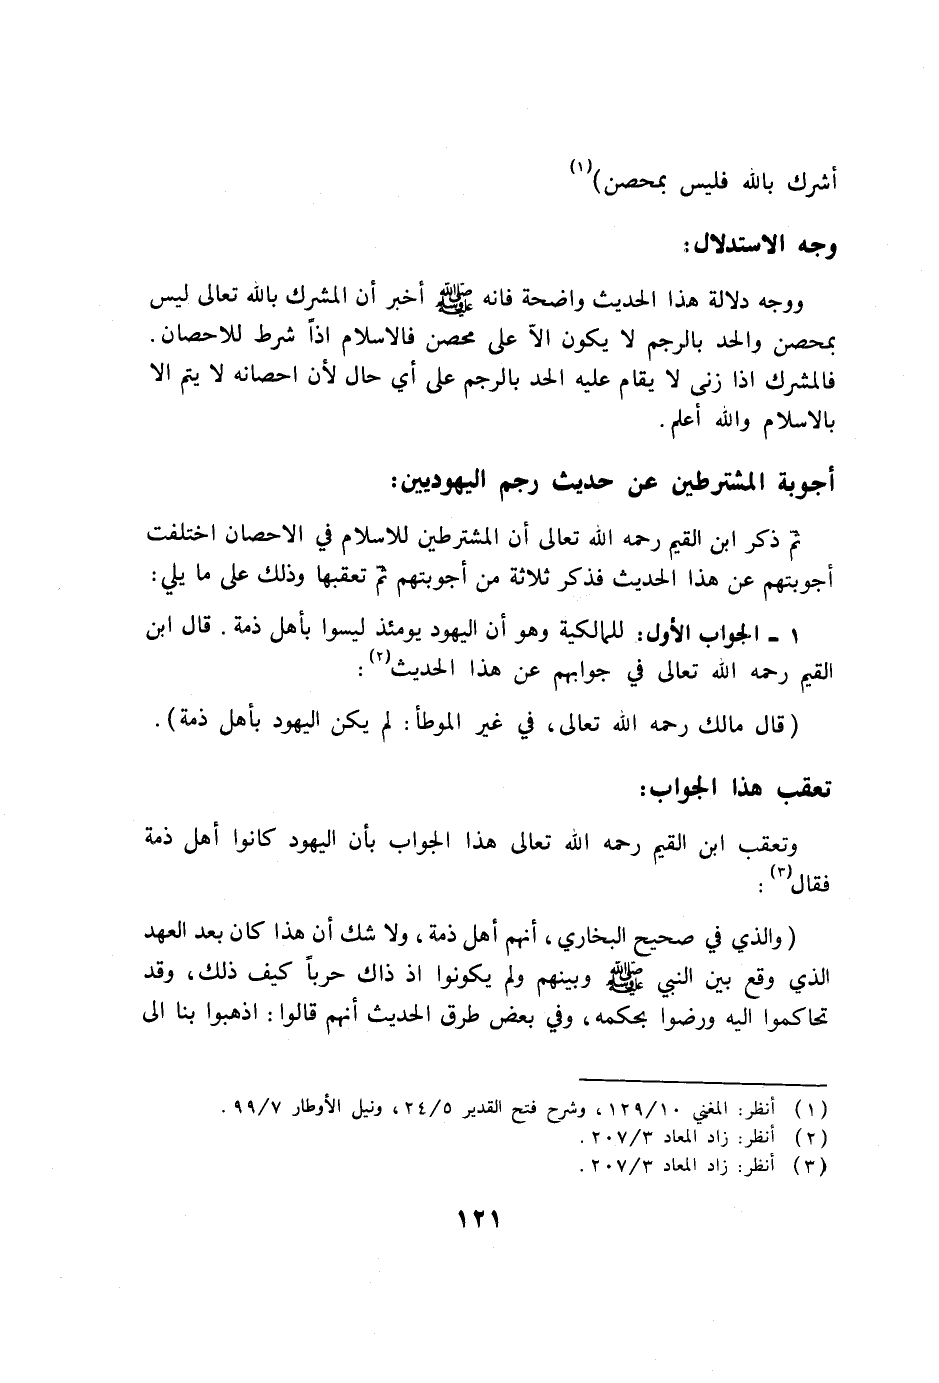 أشرك بالله فليس بمحصن)(١)
وجه الاستدلال:
ووجه دلالة هذا الحديث واضحة فانه ﷺ أخبر أن المشرك بالله تعالى ليس
بمحصن والحد بالرجم لا يكون الاّ على محصن فالاسلام اذاً شرط للاحصان.
فالمشرك اذا زنى لا يقام عليه الحد بالرجم على أي حال لأن احصانه لا يتم الا
بالاسلام والله أعلم.
أجوبة المشترطين عن حديث رجم اليهوديين:
ثمّ ذكر ابن القيم رحمه الله تعالى أن المشترطين للاسلام في الاحصان اختلفت
أجوبتهم عن هذا الحديث فذكر ثلاثة من أجوبتهم ثمّ تعقبها وذلك على ما يلي:
١ - الجواب الأول: للمالكية وهو أن اليهود يومئذ ليسوا بأهل ذمة. قال ابن
القيم رحمه الله تعالى في جوابهم عن هذا الحديث(٢):
(قال مالك رحمه الله تعالى، في غير الموطأ: لم يكن اليهود بأهل ذمة).
تعقب هذا الجواب:
وتعقب ابن القيم رحمه الله تعالى هذا الجواب بأن اليهود كانوا أهل ذمة
فقال(٣):
(والذي في صحيح البخاري، أنهم أهل ذمة، ولا شك أن هذا كان بعد العهد
الذي وقع بين النبي ﷺ وبينهم ولم يكونوا اذ ذاك حرباً كيف ذلك، وقد
تحاكموا اليه ورضوا بحكمه، وفي بعض طرق الحديث أنهم قالوا: اذهبوا بنا الى
(١) أنظر: المغني ١٢٩/١٠، وشرح فتح القدير ٢٤/٥، ونيل الأوطار ٩٩/٧.
(٢) أنظر: زاد المعاد ٢٠٧/٣.
(٣) أنظر: زاد المعاد ٢٠٧/٣.
١٢١